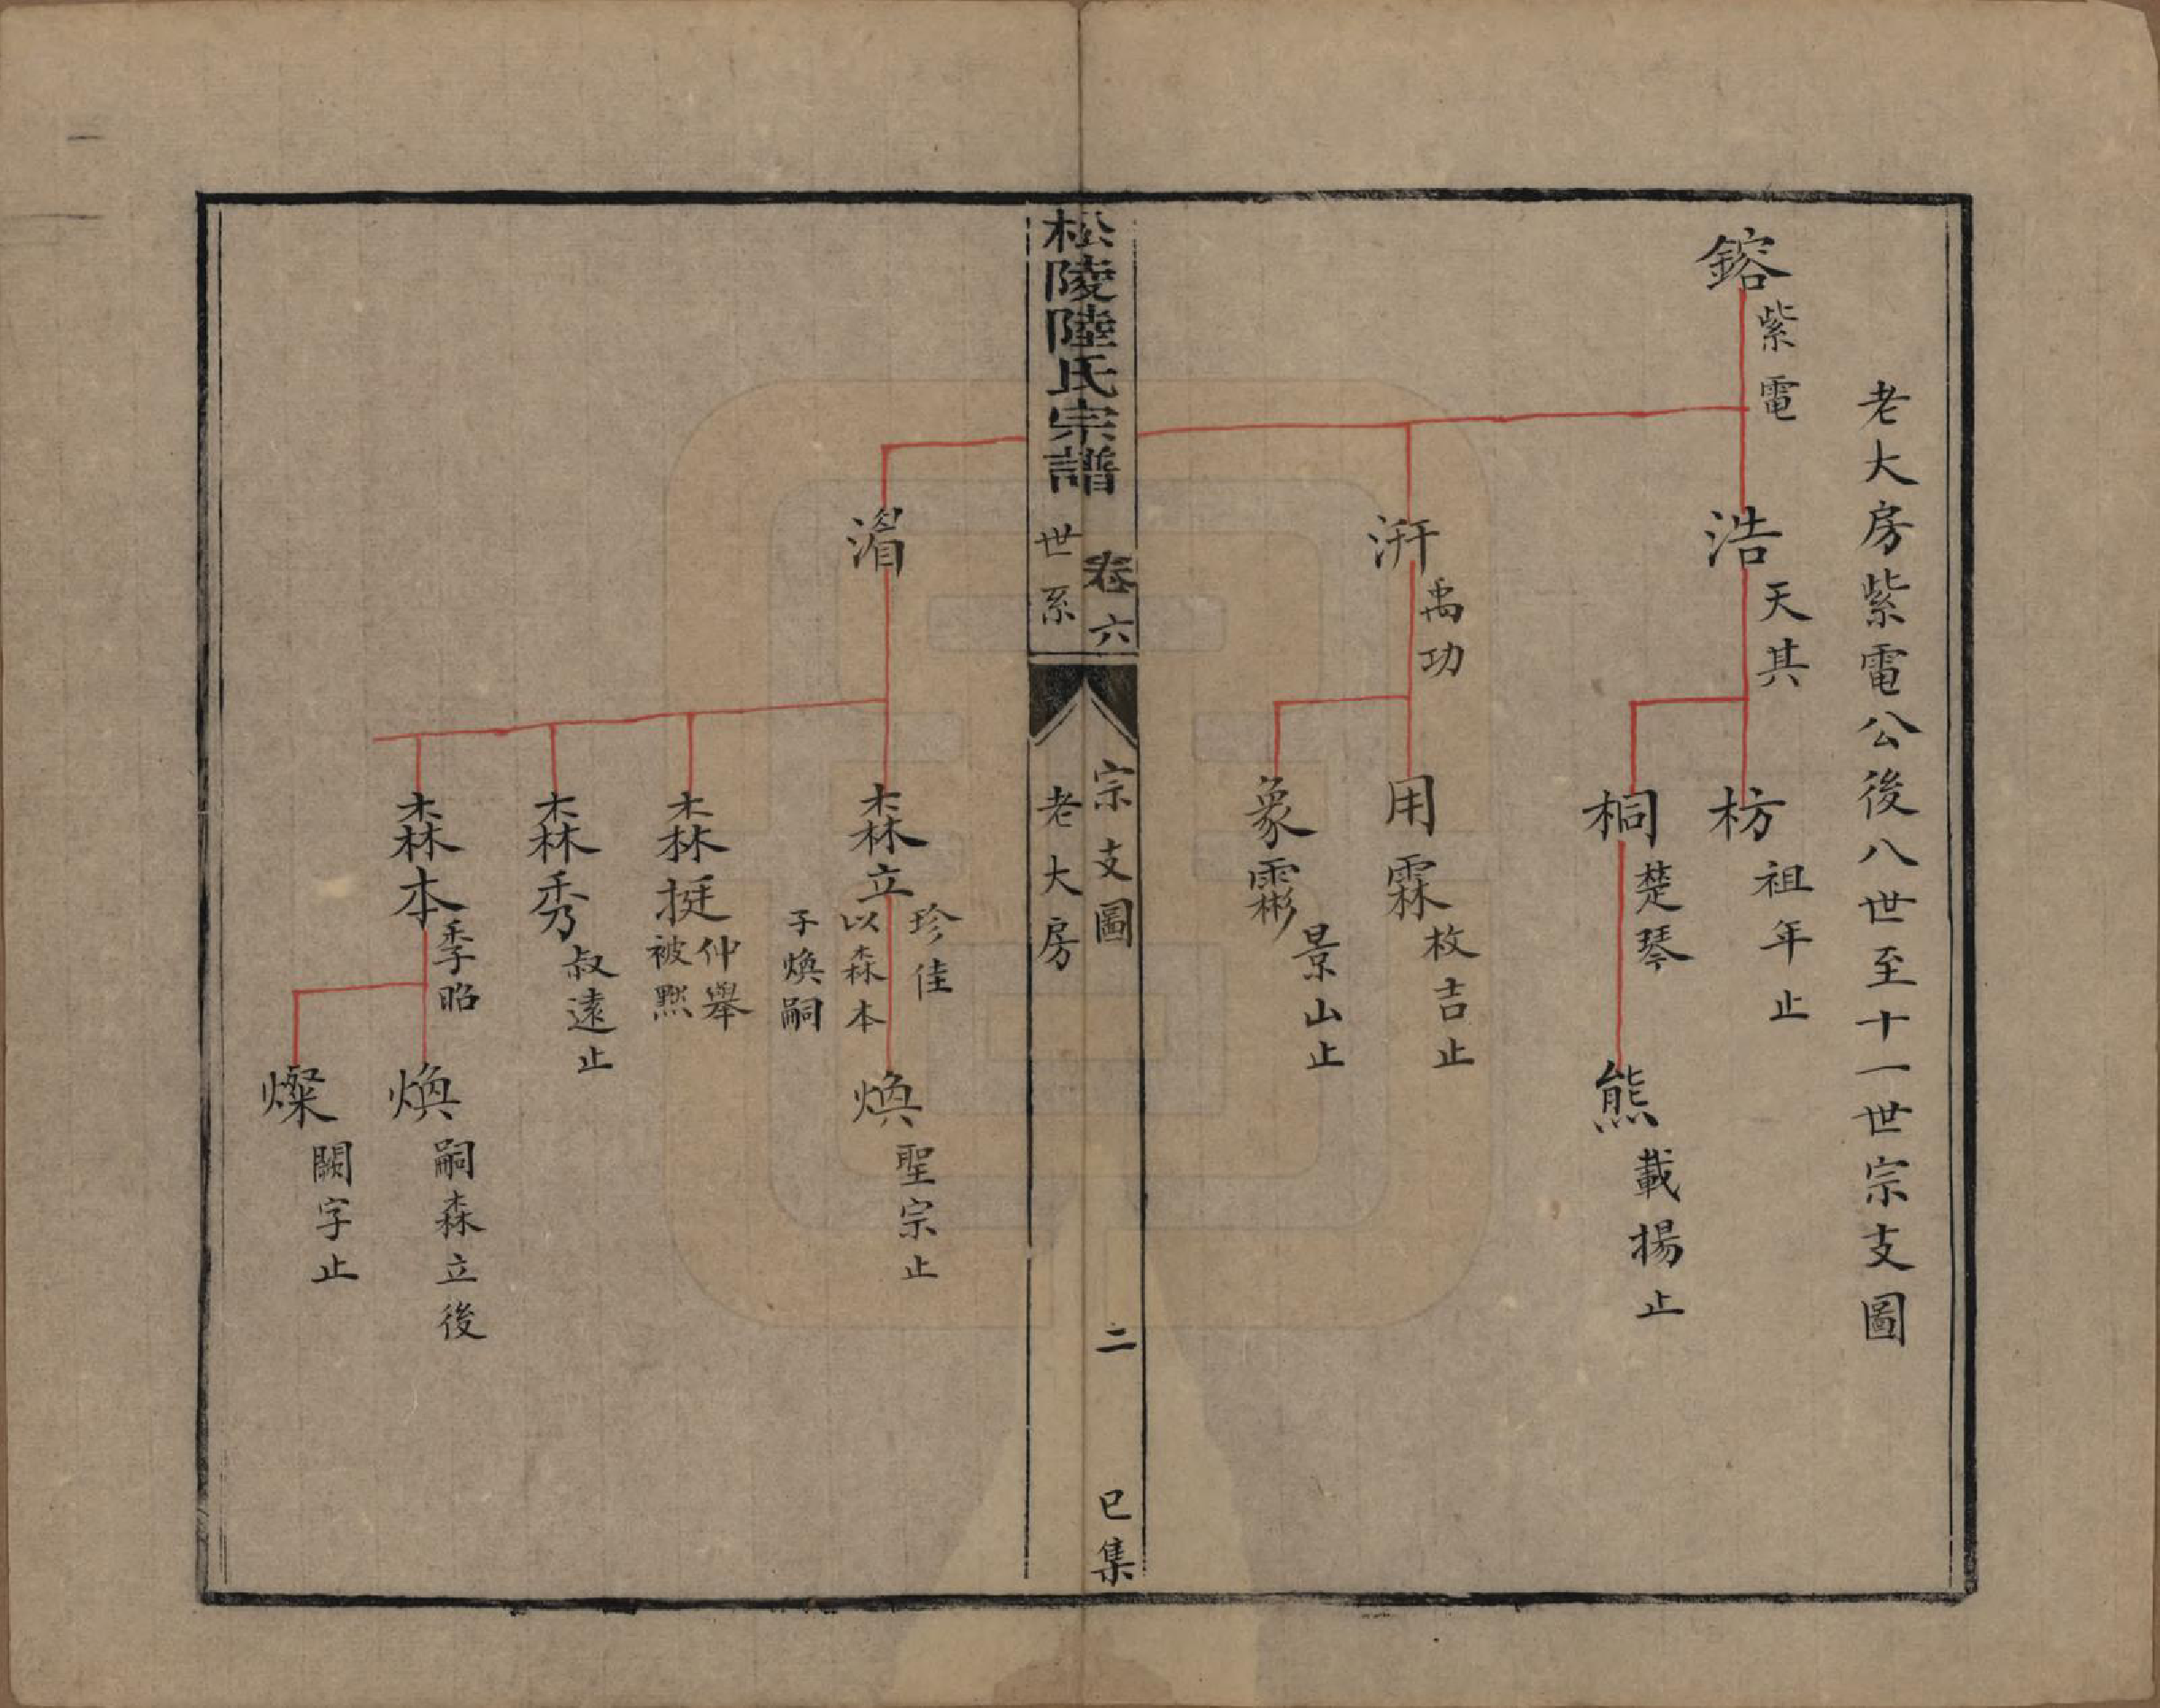 老大房紫電公後八世至十一世宗支圖
鎔
紫電
浩
天其
汧
禹功
湄
枋
祖年止
桐
楚琴
用霖
枚吉止
象霦
景山止
森立
珍佳
以森本
子煥嗣
森挺
仲舉
被黜
森秀
叔遠止
森本
季昭
熊
載揚止
煥
聖宗止
煥
嗣森立後
燦
闕字止
松陵陸氏宗譜
卷六
世系
宗支圖
老大房
二
巳集